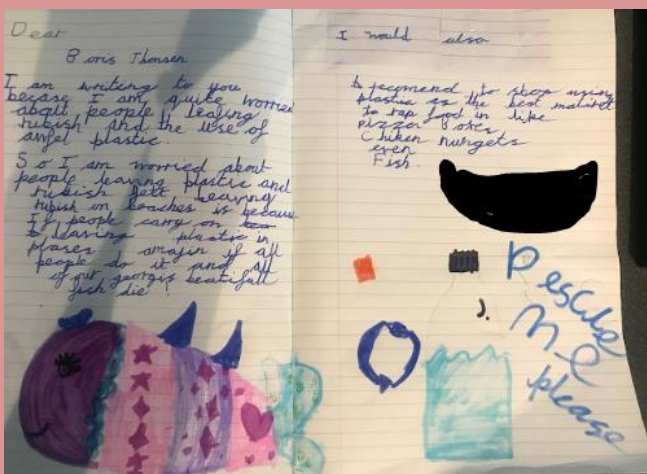 Dear
Boris Jhonsen
I am writing to you
becase I am quite worried
about people leafing
rubish and the use of
awfel plastic.
So I am worried about
people leaving plastic and
rubish
rubish on beaches is because
If people carry on
leaving plastic in
plases amajin if all
people do it and all
of our georgis beatifull
fish die!
I would also
recomend to stop using
plastic as the best
to rap food in like
pizzer Boxes
Chiken nungets
even
Fish.
Rescue
me
please